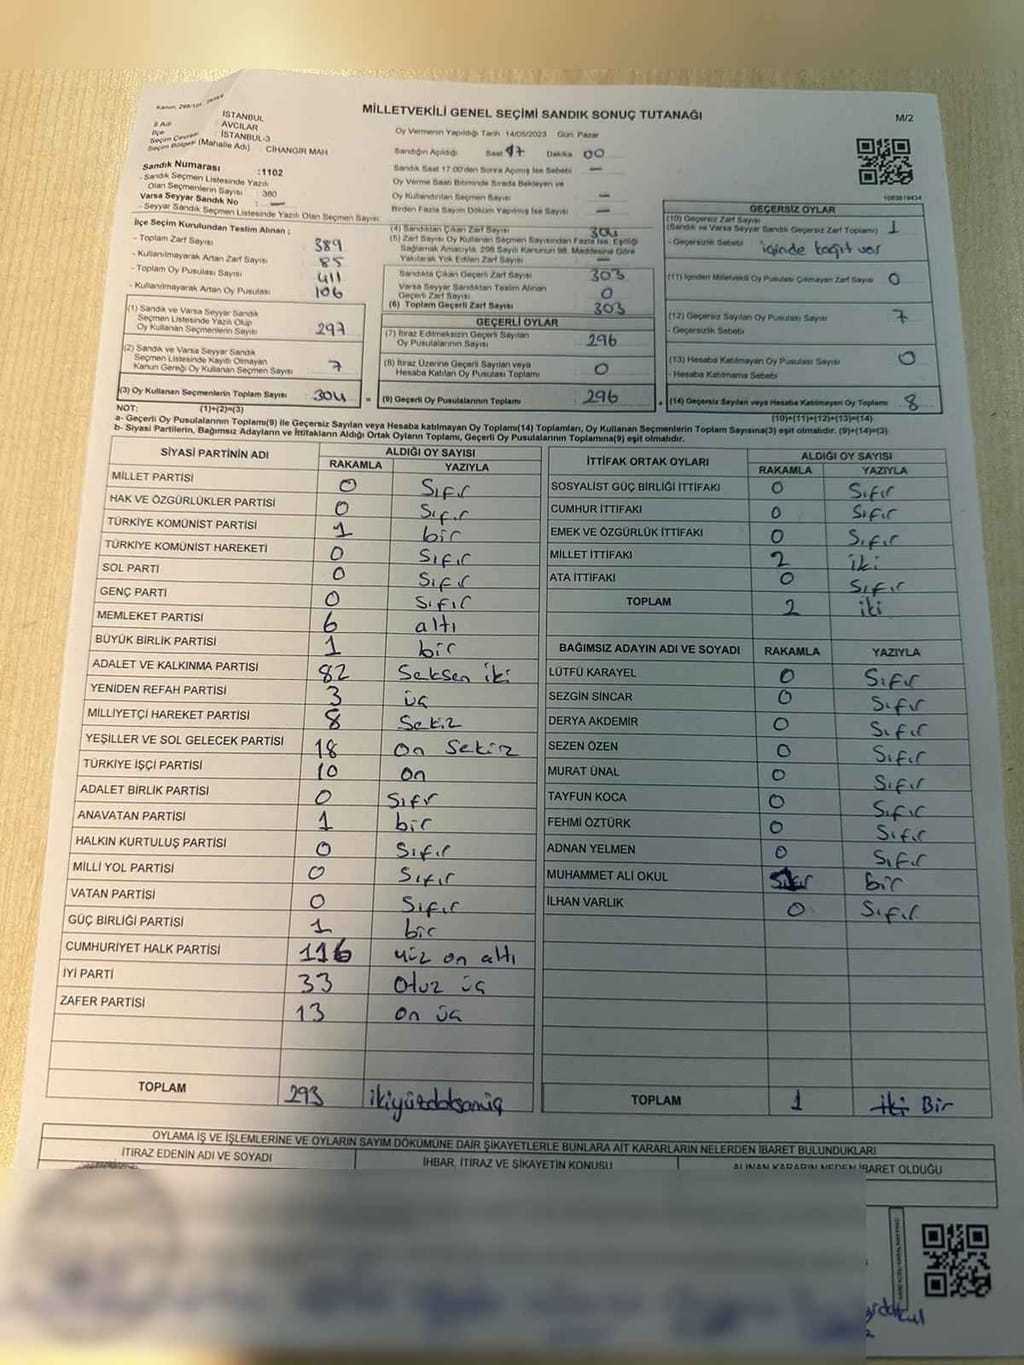 Kanun: 298/101
MİLLETVEKİLİ GENEL SEÇİMİ SANDIK SONUÇ TUTANAĞI
M/2
İl Adı : İSTANBUL
İlçe : AVCILAR
Seçim Çevresi : İSTANBUL-3
Seçim Bölgesi (Mahalle Adı) : CİHANGİR MAH
Sandık Numarası :1102
- Sandık Seçmen Listesinde Yazılı
Olan Seçmenlerin Sayısı : 380
Varsa Seyyar Sandık No : —
- Seyyar Sandık Seçmen Listesinde Yazılı Olan Seçmen Sayısı
Oy Vermenin Yapıldığı Tarih :14/05/2023 Gün: Pazar
Sandığın Açıldığı Saat 17 Dakika 00
Sandık Saat 17.00'den Sonra Açılmış İse Sebebi —
Oy Verme Saati Bitiminde Sırada Bekleyen ve
Oy Kullandırılan Seçmen Sayısı —
Birden Fazla Sayım Döküm Yapılmış İse Sayısı —
İlçe Seçim Kurulundan Teslim Alınan ;
- Toplam Zarf Sayısı 389
- Kullanılmayarak Artan Zarf Sayısı 85
- Toplam Oy Pusulası Sayısı 411
- Kullanılmayarak Artan Oy Pusulası 106
(1) Sandık ve Varsa Seyyar Sandık
Seçmen Listesinde Yazılı Olup
Oy Kullanan Seçmenlerin Sayısı 297
(2) Sandık ve Varsa Seyyar Sandık
Seçmen Listesinde Kayıtlı Olmayan
Kanun Gereği Oy Kullanan Seçmen Sayısı 7
(3) Oy Kullanan Seçmenlerin Toplam Sayısı 304 =
(4) Sandıktan Çıkan Zarf Sayısı 304
(5) Zarf Sayısı Oy Kullanan Seçmen Sayısından Fazla İse, Eşitliği
Sağlamak Amacıyla, 298 Sayılı Kanunun 98. Maddesine Göre
Yakılarak Yok Edilen Zarf Sayısı —
Sandıkta Çıkan Geçerli Zarf Sayısı 303
Varsa Seyyar Sandıktan Teslim Alınan
Geçerli Zarf Sayısı 0
(6) Toplam Geçerli Zarf Sayısı 303
GEÇERLİ OYLAR
(7) İtiraz Edilmeksizin Geçerli Sayılan
Oy Pusulalarının Sayısı 296
(8) İtiraz Üzerine Geçerli Sayılan veya
Hesaba Katılan Oy Pusulası Toplamı 0
(9) Geçerli Oy Pusulalarının Toplamı 296 +
GEÇERSİZ OYLAR
(10) Geçersiz Zarf Sayısı
(Sandık ve Varsa Seyyar Sandık Geçersiz Zarf Toplamı) 1
- Geçersizlik Sebebi içinde kağıt var
(11) İçinden Milletvekili Oy Pusulası Çıkmayan Zarf Sayısı 0
(12) Geçersiz Sayılan Oy Pusulası Sayısı 7
- Geçersizlik Sebebi
(13) Hesaba Katılmayan Oy Pusulası Sayısı 0
- Hesaba Katılmama Sebebi
(14) Geçersiz Sayılan veya Hesaba Katılmayan Oy Toplamı 8
NOT: (1)+(2)=(3) (10)+(11)+(12)+(13)=(14)
a- Geçerli Oy Pusulalarının Toplamı(9) ile Geçersiz Sayılan veya Hesaba katılmayan Oy Toplamı(14) Toplamları, Oy Kullanan Seçmenlerin Toplam Sayısına(3) eşit olmalıdır. (9)+(14)=(3)
b- Siyasi Partilerin, Bağımsız Adayların ve İttifakların Aldığı Ortak Oyların Toplamı, Geçerli Oy Pusulalarının Toplamına(9) eşit olmalıdır.
SİYASİ PARTİNİN ADI ALDIĞI OY SAYISI
RAKAMLA YAZIYLA
MİLLET PARTİSİ 0 Sıfır
HAK VE ÖZGÜRLÜKLER PARTİSİ 0 Sıfır
TÜRKİYE KOMÜNİST PARTİSİ 1 bir
TÜRKİYE KOMÜNİST HAREKETİ 0 Sıfır
SOL PARTİ 0 Sıfır
GENÇ PARTİ 0 Sıfır
MEMLEKET PARTİSİ 6 altı
BÜYÜK BİRLİK PARTİSİ 1 bir
ADALET VE KALKINMA PARTİSİ 82 Seksen iki
YENİDEN REFAH PARTİSİ 3 üç
MİLLİYETÇİ HAREKET PARTİSİ 8 Sekiz
YEŞİLLER VE SOL GELECEK PARTİSİ 18 On Sekiz
TÜRKİYE İŞÇİ PARTİSİ 10 on
ADALET BİRLİK PARTİSİ 0 Sıfır
ANAVATAN PARTİSİ 1 bir
HALKIN KURTULUŞ PARTİSİ 0 Sıfır
MİLLİ YOL PARTİSİ 0 Sıfır
VATAN PARTİSİ 0 Sıfır
GÜÇ BİRLİĞİ PARTİSİ 1 bir
CUMHURİYET HALK PARTİSİ 116 yüz on altı
İYİ PARTİ 33 Otuz üç
ZAFER PARTİSİ 13 on üç
TOPLAM 293 ikiyüzdoksanüç
İTTİFAK ORTAK OYLARI ALDIĞI OY SAYISI
RAKAMLA YAZIYLA
SOSYALİST GÜÇ BİRLİĞİ İTTİFAKI 0 Sıfır
CUMHUR İTTİFAKI 0 Sıfır
EMEK VE ÖZGÜRLÜK İTTİFAKI 0 Sıfır
MİLLET İTTİFAKI 2 iki
ATA İTTİFAKI 0 Sıfır
TOPLAM 2 iki
BAĞIMSIZ ADAYIN ADI VE SOYADI RAKAMLA YAZIYLA
LÜTFÜ KARAYEL 0 Sıfır
SEZGİN SİNCAR 0 Sıfır
DERYA AKDEMİR 0 Sıfır
SEZEN ÖZEN 0 Sıfır
MURAT ÜNAL 0 Sıfır
TAYFUN KOCA 0 Sıfır
FEHMİ ÖZTÜRK 0 Sıfır
ADNAN YELMEN 0 Sıfır
MUHAMMET ALİ OKUL bir
İLHAN VARLIK 0 Sıfır
TOPLAM 1 iki Bir
OYLAMA İŞ VE İŞLEMLERİNE VE OYLARIN SAYIM DÖKÜMÜNE DAİR ŞİKAYETLERLE BUNLARA AİT KARARLARIN NELERDEN İBARET BULUNDUKLARI
İTİRAZ EDENİN ADI VE SOYADI İHBAR, İTİRAZ VE ŞİKAYETİN KONUSU ALINAN KARARIN NEDEN İBARET OLDUĞU